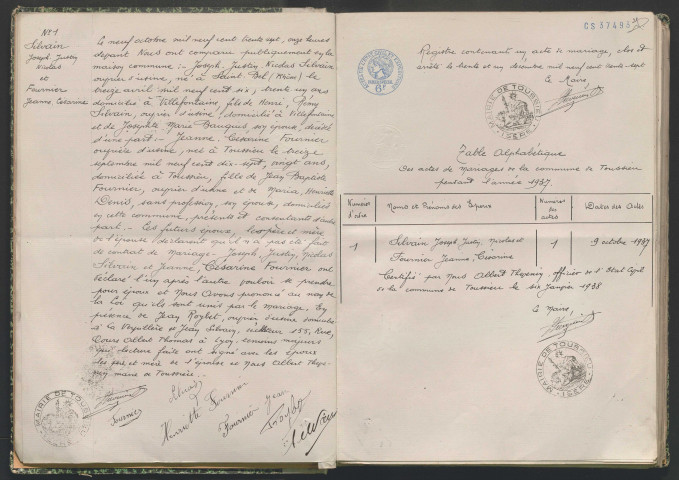 N° 1
Silvain
Joseph Justin
Nicolas
et
Fournier
Jeanne Césarine
Le neuf octobre mil neuf cent trente sept, onze heures
devant Nous ont comparu publiquement en la
maison commune : Joseph, Justin, Nicolas Silvain
ouvrier d'usine, né à Saint Bel (Rhône) le
treize avril mil neuf cent six, trente un ans
domicilié à Villefontaine, fils de Henri, Rémy
Silvain, ouvrier d'usine, domicilié à Villefontaine
et de Josephte Marie son épouse, décédée
d'une part :- Jeanne Césarine Fournier
ouvrière d'usine, née à Toussieu le treize
septembre mil neuf cent dix-sept, vingt ans,
domiciliée à Toussieu, fille de Jean Baptiste
Fournier, ouvrier d'usine et de Maria, Henriette
Denis, sans profession, son épouse, domiciliés
en cette commune, présents et consentants d'autre
part.- Les futurs époux, les père et mère
de l'épouse, déclarent qu'il n'a pas été fait
de contrat de mariage.- Joseph, Justin, Nicolas
Silvain et Jeanne, Césarine Fournier ont
déclaré l'un après l'autre vouloir se prendre
pour époux et Nous avons prononcé au nom de
la Loi qu'ils sont unis par le mariage. En
présence de Jean Roybet, ouvrier d'usine domicilié
à La Verpillère et Jean Silvain, 155, Rue,
Cours Albert Thomas à Lyon, témoins majeurs
qui, lecture faite ont signé avec les époux
les père et mère de l'épouse et Nous Albert
maire de Toussieu.-
Silvain
Fournier
Henriette Fournier
Fournier Jean
J Roybet
MAIRIE DE TOUSSIEU
ISERE
CS 37498
Registre contenant un acte de mariage, clos et
arrêté le trente et un décembre mil neuf cent trente-sept
Le Maire,
MAIRIE DE TOUSSIEU
ISERE
Table Alphabétique
Des actes de Mariages de la commune de Toussieu
pendant l'année 1937.
Numéros d'ordre
Noms et Prénoms des Epoux
Numéros des actes
Dates des Actes
1
Silvain Joseph Justin, Nicolas et
Fournier Jeanne, Césarine
1
9 octobre 1937
Certifié par Nous Albert officier de l'Etat Civil
de la commune de Toussieu le six Janvier 1938
Le Maire,
MAIRIE DE TOUSSIEU
ISERE